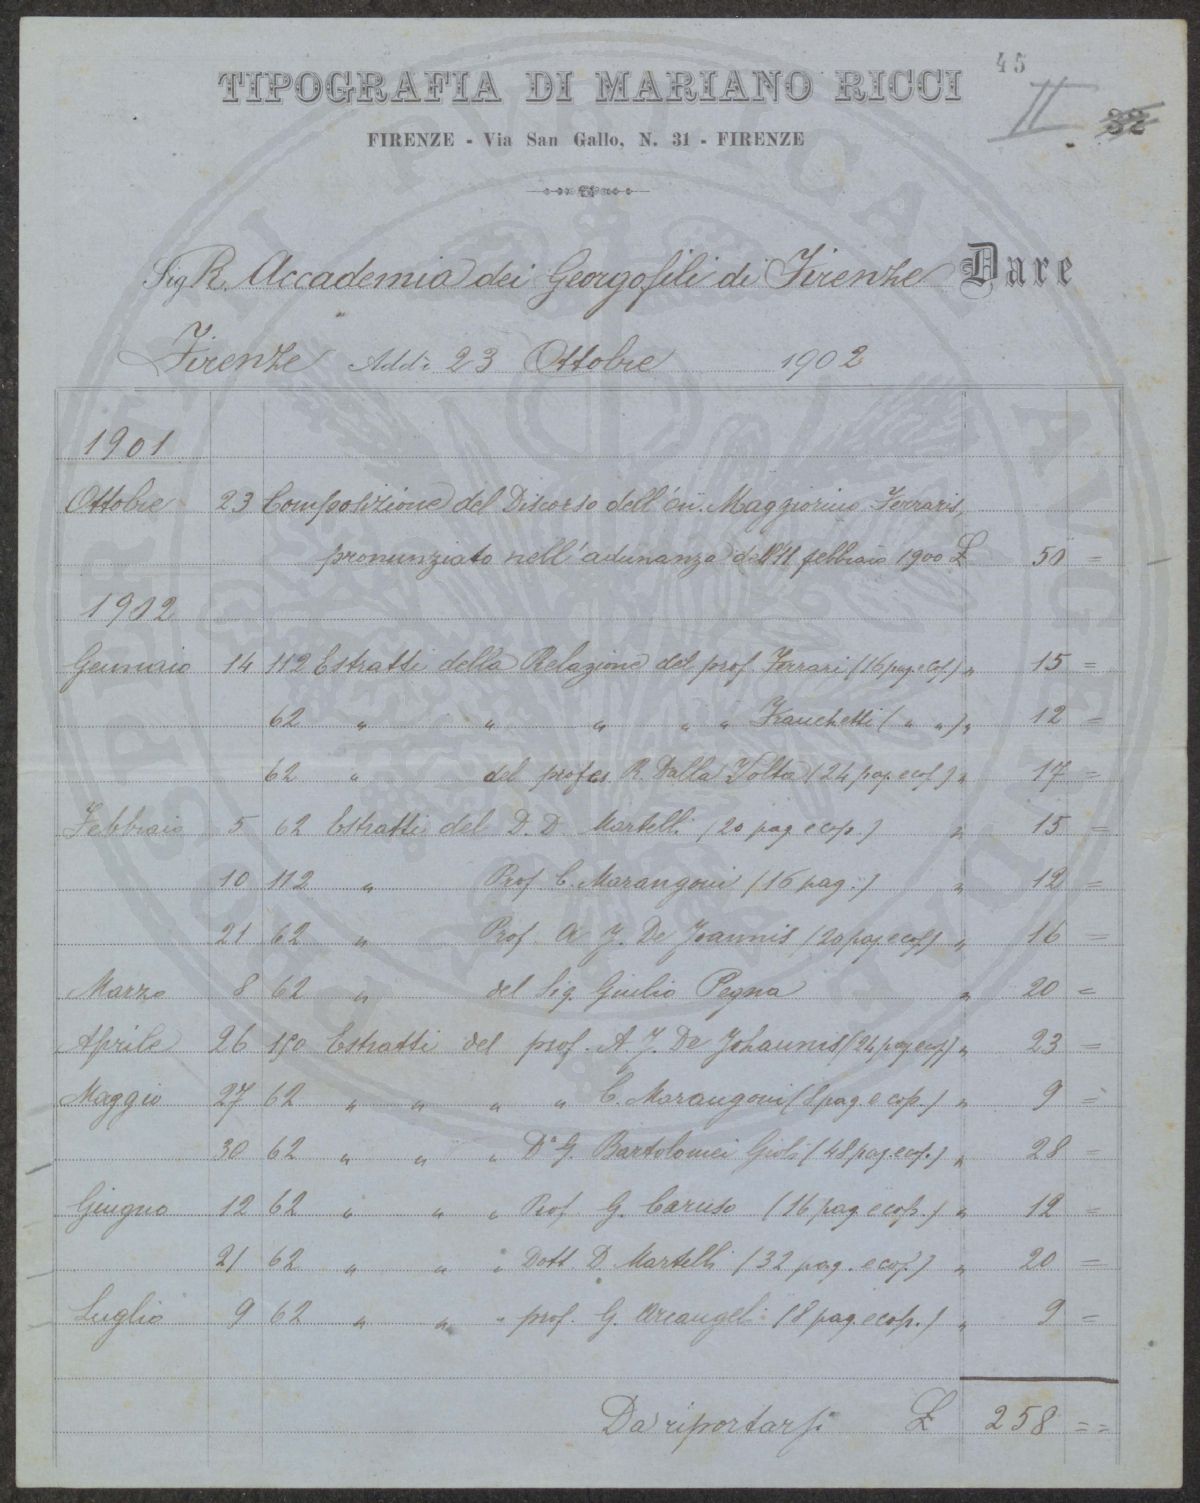 45
II
32
TIPOGRAFIA DI MARIANO RICCI
FIRENZE - Via San Gallo, N. 31 - FIRENZE
Sig R. Accademia dei Georgofili di Firenze Dare
Firenze Addì 23 Ottobre 1902
1901
Ottobre 23 Composizione del Discorso dell'on. Maggiorino Ferraris,
pronunziato nell'adunanza dell'11 febbraio 1900 £ 50 =
1902
Gennaio 14 112 Estratti della Relazione del prof. Ferrari (16 pag. e cop.) " 15 =
62 " " " " " Franchetti ( " " ) " 12 =
62 " del profes. R. Dalla Volta (24 pag. e cop.) " 17 =
Febbraio 5 62 Estratti del D. D. Martelli (20 pag. e cop.) " 15 =
10 112 " Prof. C. Marangoni (16 pag.) " 12 =
21 62 " Prof. A. J. De Joannis (20 pag. e cop.) " 16 =
Marzo 8 62 " del Sig. Giulio Pegna " 20 =
Aprile 26 150 Estratti del prof. A. J. De Johannis (24 pag. e cop.) " 23 =
Maggio 27 62 " " " " C. Marangoni (8 pag. e cop.) " 9 =
30 62 " " " Dr G. Bartolomei Gioli (48 pag. e cop.) " 28 =
Giugno 12 62 " " " Prof. G. Caruso (16 pag. e cop.) " 12 =
21 62 " " " Dott. D. Martelli (32 pag. e cop.) " 20 =
Luglio 9 62 " " " prof. G. Arcangeli (8 pag. e cop.) " 9 =
Da riportarsi £ 258 = =